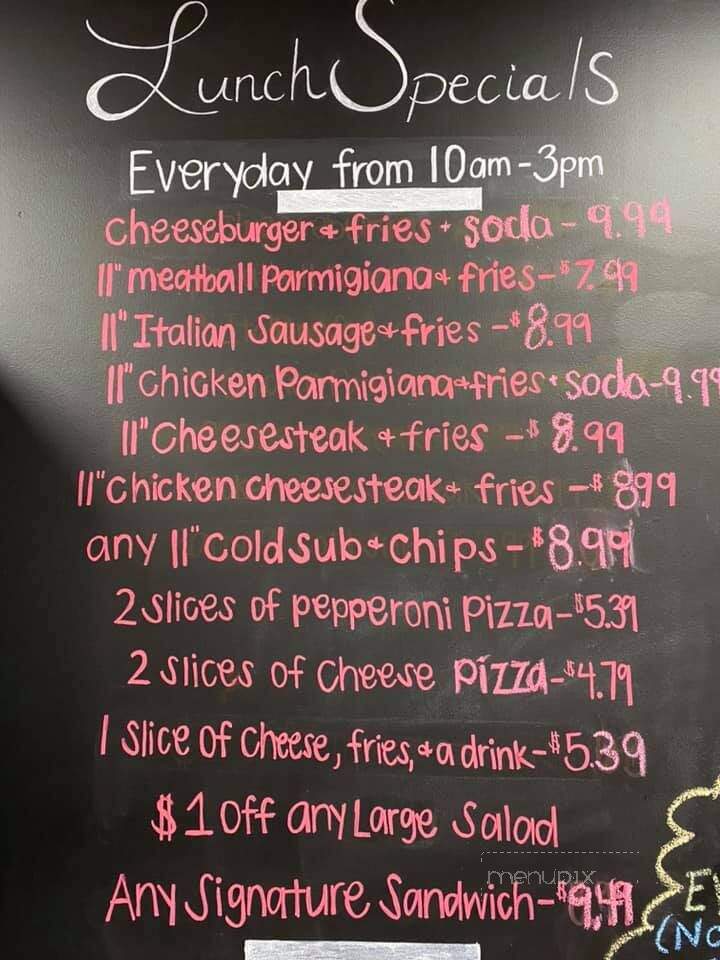 Lunch Specials
Everyday from 10am-3pm
cheeseburger + fries + soda - 9.99
11" meatball Parmigiana + fries - $7.99
11" Italian Sausage + fries - $8.99
11" Chicken Parmigiana + fries + soda - 9.99
11" Cheesesteak + fries - $8.99
11" Chicken Cheesesteak + fries - $8.99
any 11" cold sub + chips - $8.99
2 slices of pepperoni Pizza - $5.39
2 slices of Cheese pizza - $4.79
1 Slice of Cheese, fries, + a drink - $5.39
$1 Off any Large Salad
menupix
Any Signature Sandwich - $9.49
(No